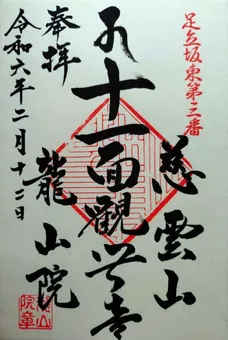 足立坂東第三番
慈雲山
十一面觀世音
龍山院
奉拝
令和六年二月十二日